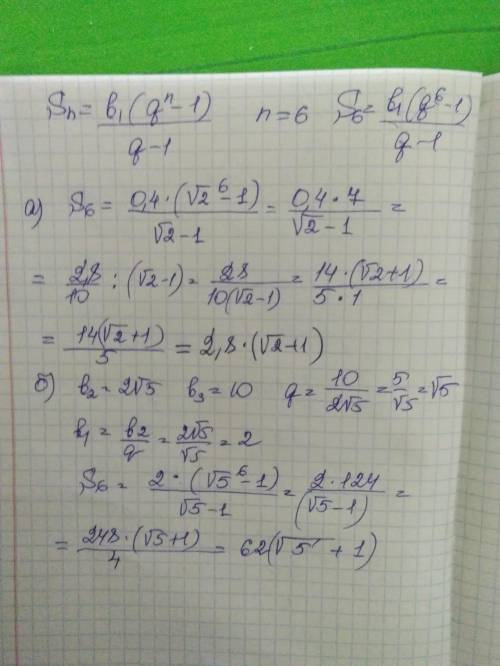 Sn = b₁(qⁿ-1)/(q-1) n=6 S₆ = b₁(q⁶-1)/(q-1)
а) S₆ = 0,4·(√2⁶-1)/(√2-1) = 0,4·7/(√2-1) =
= 28/10 : (√2-1) = 28/(10(√2-1)) = 14·(√2+1)/(5·1) =
= 14(√2+1)/5 = 2,8·(√2+1)
б) b₂=2√5 b₃=10 q = 10/(2√5) = 5/√5 = √5
b₁ = b2/q = 2√5/√5 = 2
S₆ = 2·(√5⁶-1)/(√5-1) = 2·124/(√5-1) =
= 248·(√5+1)/4 = 62(√5+1)